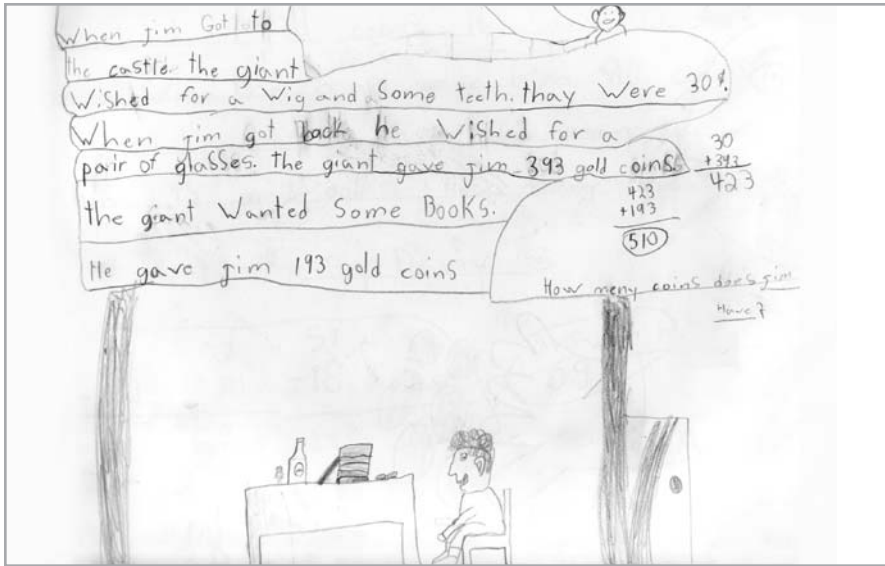 When jim Got to
the castle the giant
Wished for a Wig and Some teeth. thay Were 30¢.
When jim got back he Wished for a
pair of glasses. the giant gave jim 393 gold coins.
the giant Wanted Some Books.
He gave jim 193 gold coins
30
+393
423
423
+193
510
How meny coins does jim
Have?